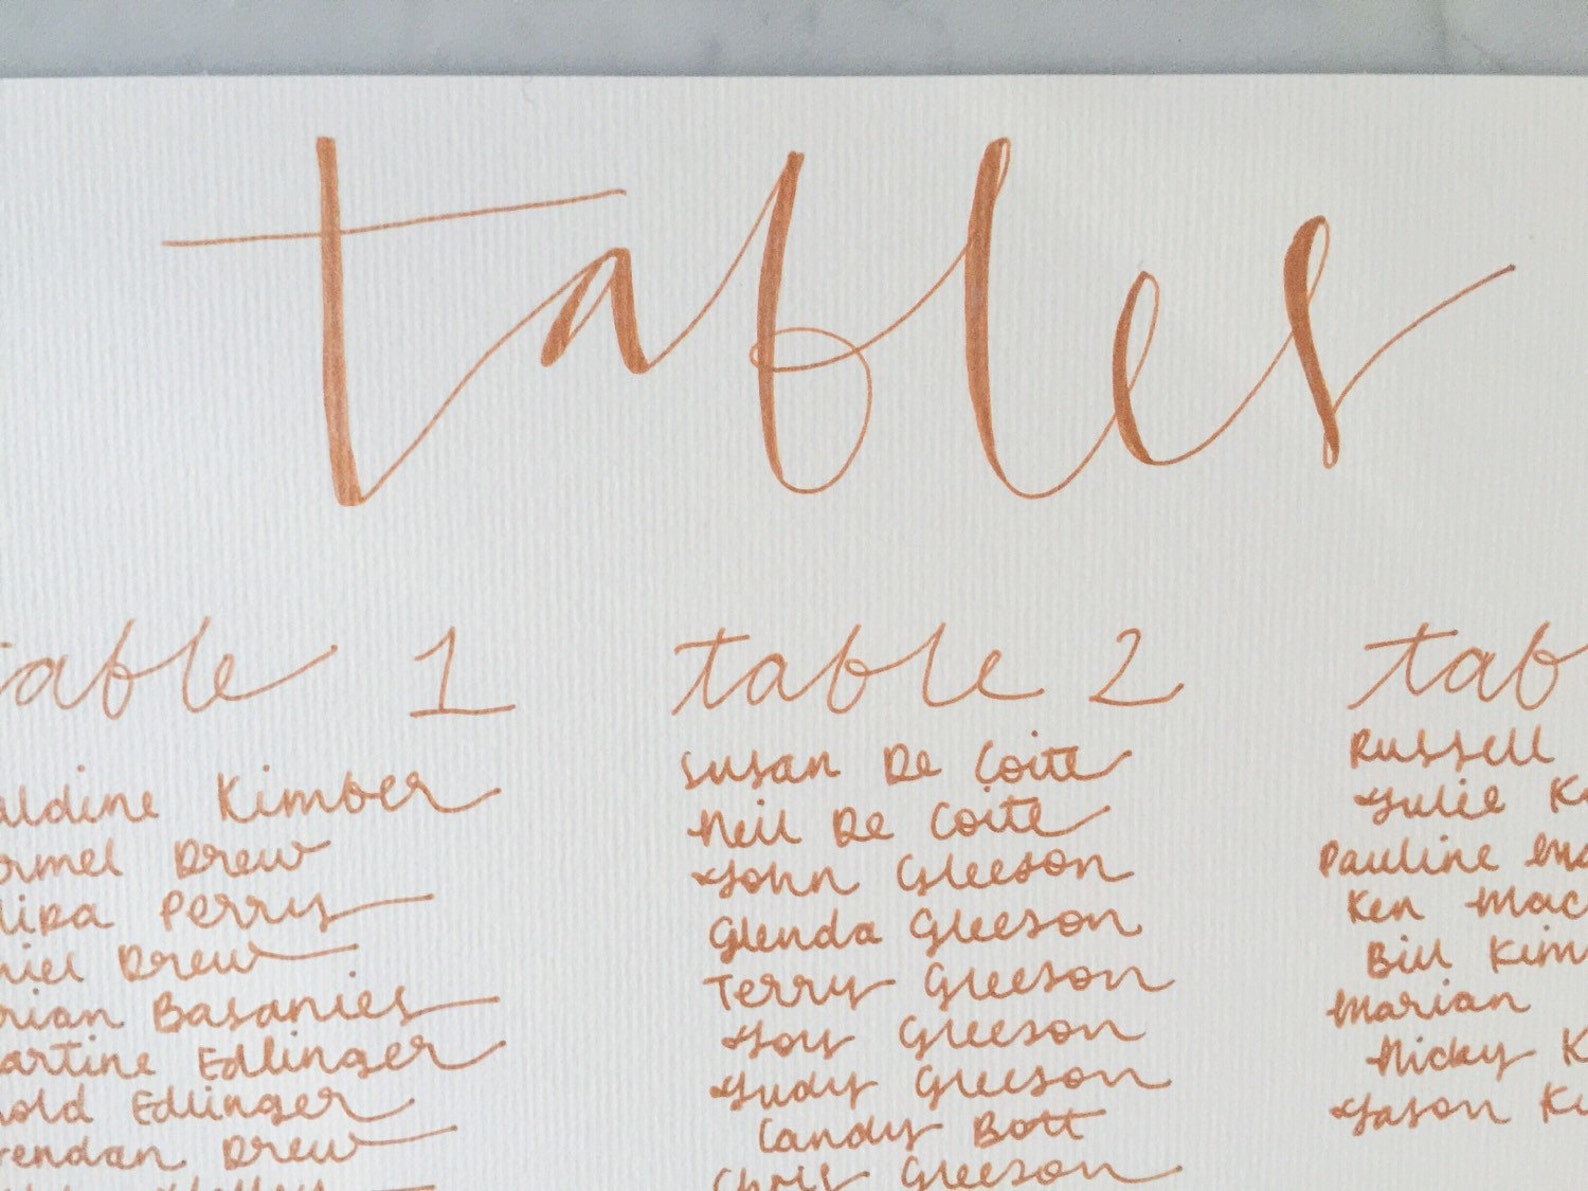 tables
table 1
aldine Kimber
ormel Drew
lipa Perry
niel Drew
rian Basanies
artine Edlinger
nold Edlinger
rendan Drew
table 2
Susan De Coite
Neil De Coite
John Gleeson
Glenda Gleeson
Terry Gleeson
Joy Gleeson
Judy Gleeson
Candy Bott
Chris Gleeson
tab
Russell
Julie K
Pauline
Ken Mac
Bill Kim
Marian
Nicky K
Jason Ki